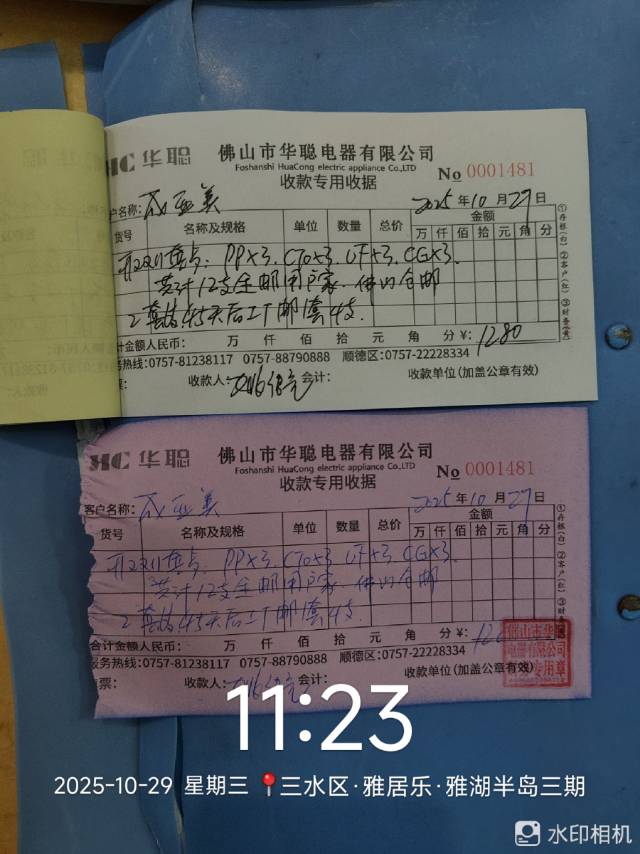 HC 华聪 佛山市华聪电器有限公司
Foshanshi HuaCong electric appliance Co.,LTD
No 0001481
收款专用收据
户名称: 成亚美 2025年10月29日
货号 名称及规格 单位 数量 总价 金额
万 仟 佰 拾 元 角 分
PP×3. C70×3. UF×3. CG×3.
共计12支全邮用户家
①存根(白) ②客户(红) ③财务(黄)
计金额人民币: 万 仟 佰 拾 元 角 分 ¥: 1280
务热线:0757-81238117 0757-88790888 顺德区:0757-22228334
票: 收款人: 会计: 收款单位(加盖公章有效)
HC 华聪 佛山市华聪电器有限公司
Foshanshi HuaCong electric appliance Co.,LTD
No 0001481
收款专用收据
客户名称: 成亚美 2025年10月29日
货号 名称及规格 单位 数量 总价 金额
万 仟 佰 拾 元 角 分
PP×3. C70×3. UF×3. CG×3.
共计12支全邮用户家
①存根(白) ②客户(红) ③财务
合计金额人民币: 万 仟 佰 拾 元 角 分 ¥:
服务热线:0757-81238117 0757-88790888 顺德区:0757-22228334
票: 收款人: 会计: 收款单位(加盖公章有效)
佛山市华
电器有限公司
专用章
11:23
2025-10-29 星期三 三水区·雅居乐·雅湖半岛三期
水印相机